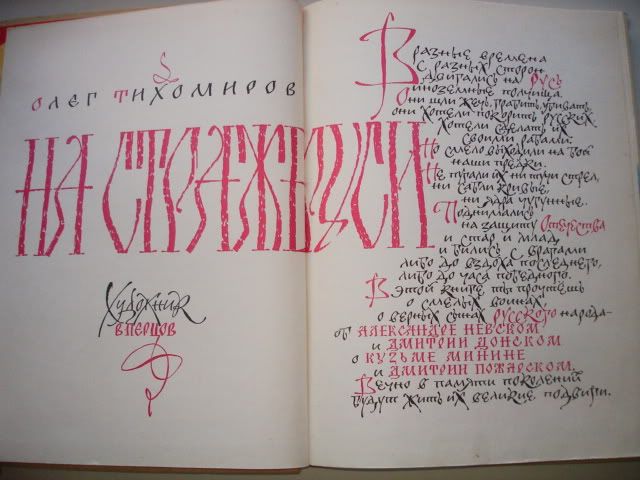 Олег Тихомиров
НА СТРАЖЕ РУСИ
Художник
В ПЕРЦОВ
В разные времена
с разных сторон
двигались на Русь
иноземные полчища.
Они шли жечь, грабить, убивать,
они хотели покорить русских,
хотели сделать их
своими рабами.
Но смело выходили на бой
наши предки.
Не пугали их ни тучи стрел,
ни сабли кривые,
ни ядра чугунные.
Поднимались
на защиту Отечества
и стар и млад
и бились с врагами
либо до вздоха последнего,
либо до часа победного.
В этой книге ты прочтешь
о смелых воинах,
о верных сынах русского народа-
об АЛЕКСАНДРЕ НЕВСКОМ
и ДМИТРИИ ДОНСКОМ
о КУЗЬМЕ МИНИНЕ
и ДМИТРИИ ПОЖАРСКОМ.
Вечно в памяти поколений
будут жить их великие подвиги.